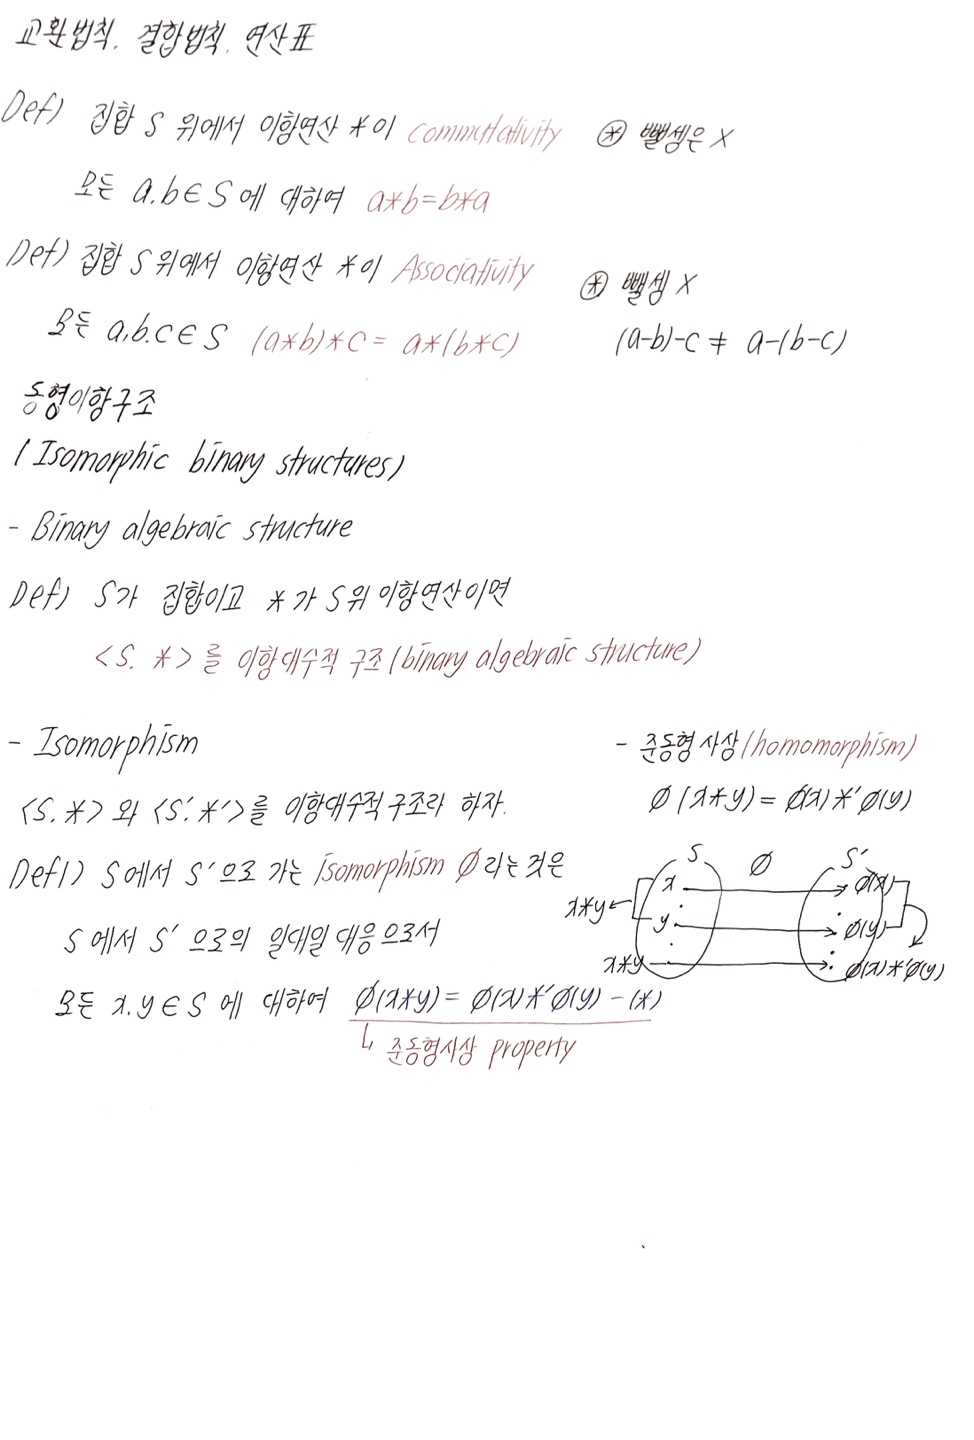 교환법칙. 결합법칙. 연산표
Def) 집합 S 위에서 이항연산 *이 commutativity ⊛ 뺄셈은 X
모든 a.b∈S에 대하여 a*b=b*a
Def) 집합 S위에서 이항연산 *이 Associativity ⊛ 뺄셈 X
모든 a.b.c∈S (a*b)*c = a*(b*c) (a-b)-c ≠ a-(b-c)
동형이항구조
(Isomorphic binary structures)
- Binary algebraic structure
Def) S가 집합이고 *가 S위 이항연산이면
<S. *>를 이항대수적 구조(binary algebraic structure)
- Isomorphism
<S.*>와 <S'.*'>를 이항대수적구조라 하자.
Def1) S에서 S'으로 가는 isomorphism ∅라는것은
S에서 S'으로의 일대일 대응으로서
모든 x.y∈S에 대하여 ∅(x*y)= ∅(x)*'∅(y) -(*)
↳ 준동형사상 property
- 준동형사상(homomorphism)
∅(x*y)= ∅(x)*'∅(y)
S ∅ S'
x ∅(x)
x*y y ∅(y)
x*y ∅(x)*'∅(y)